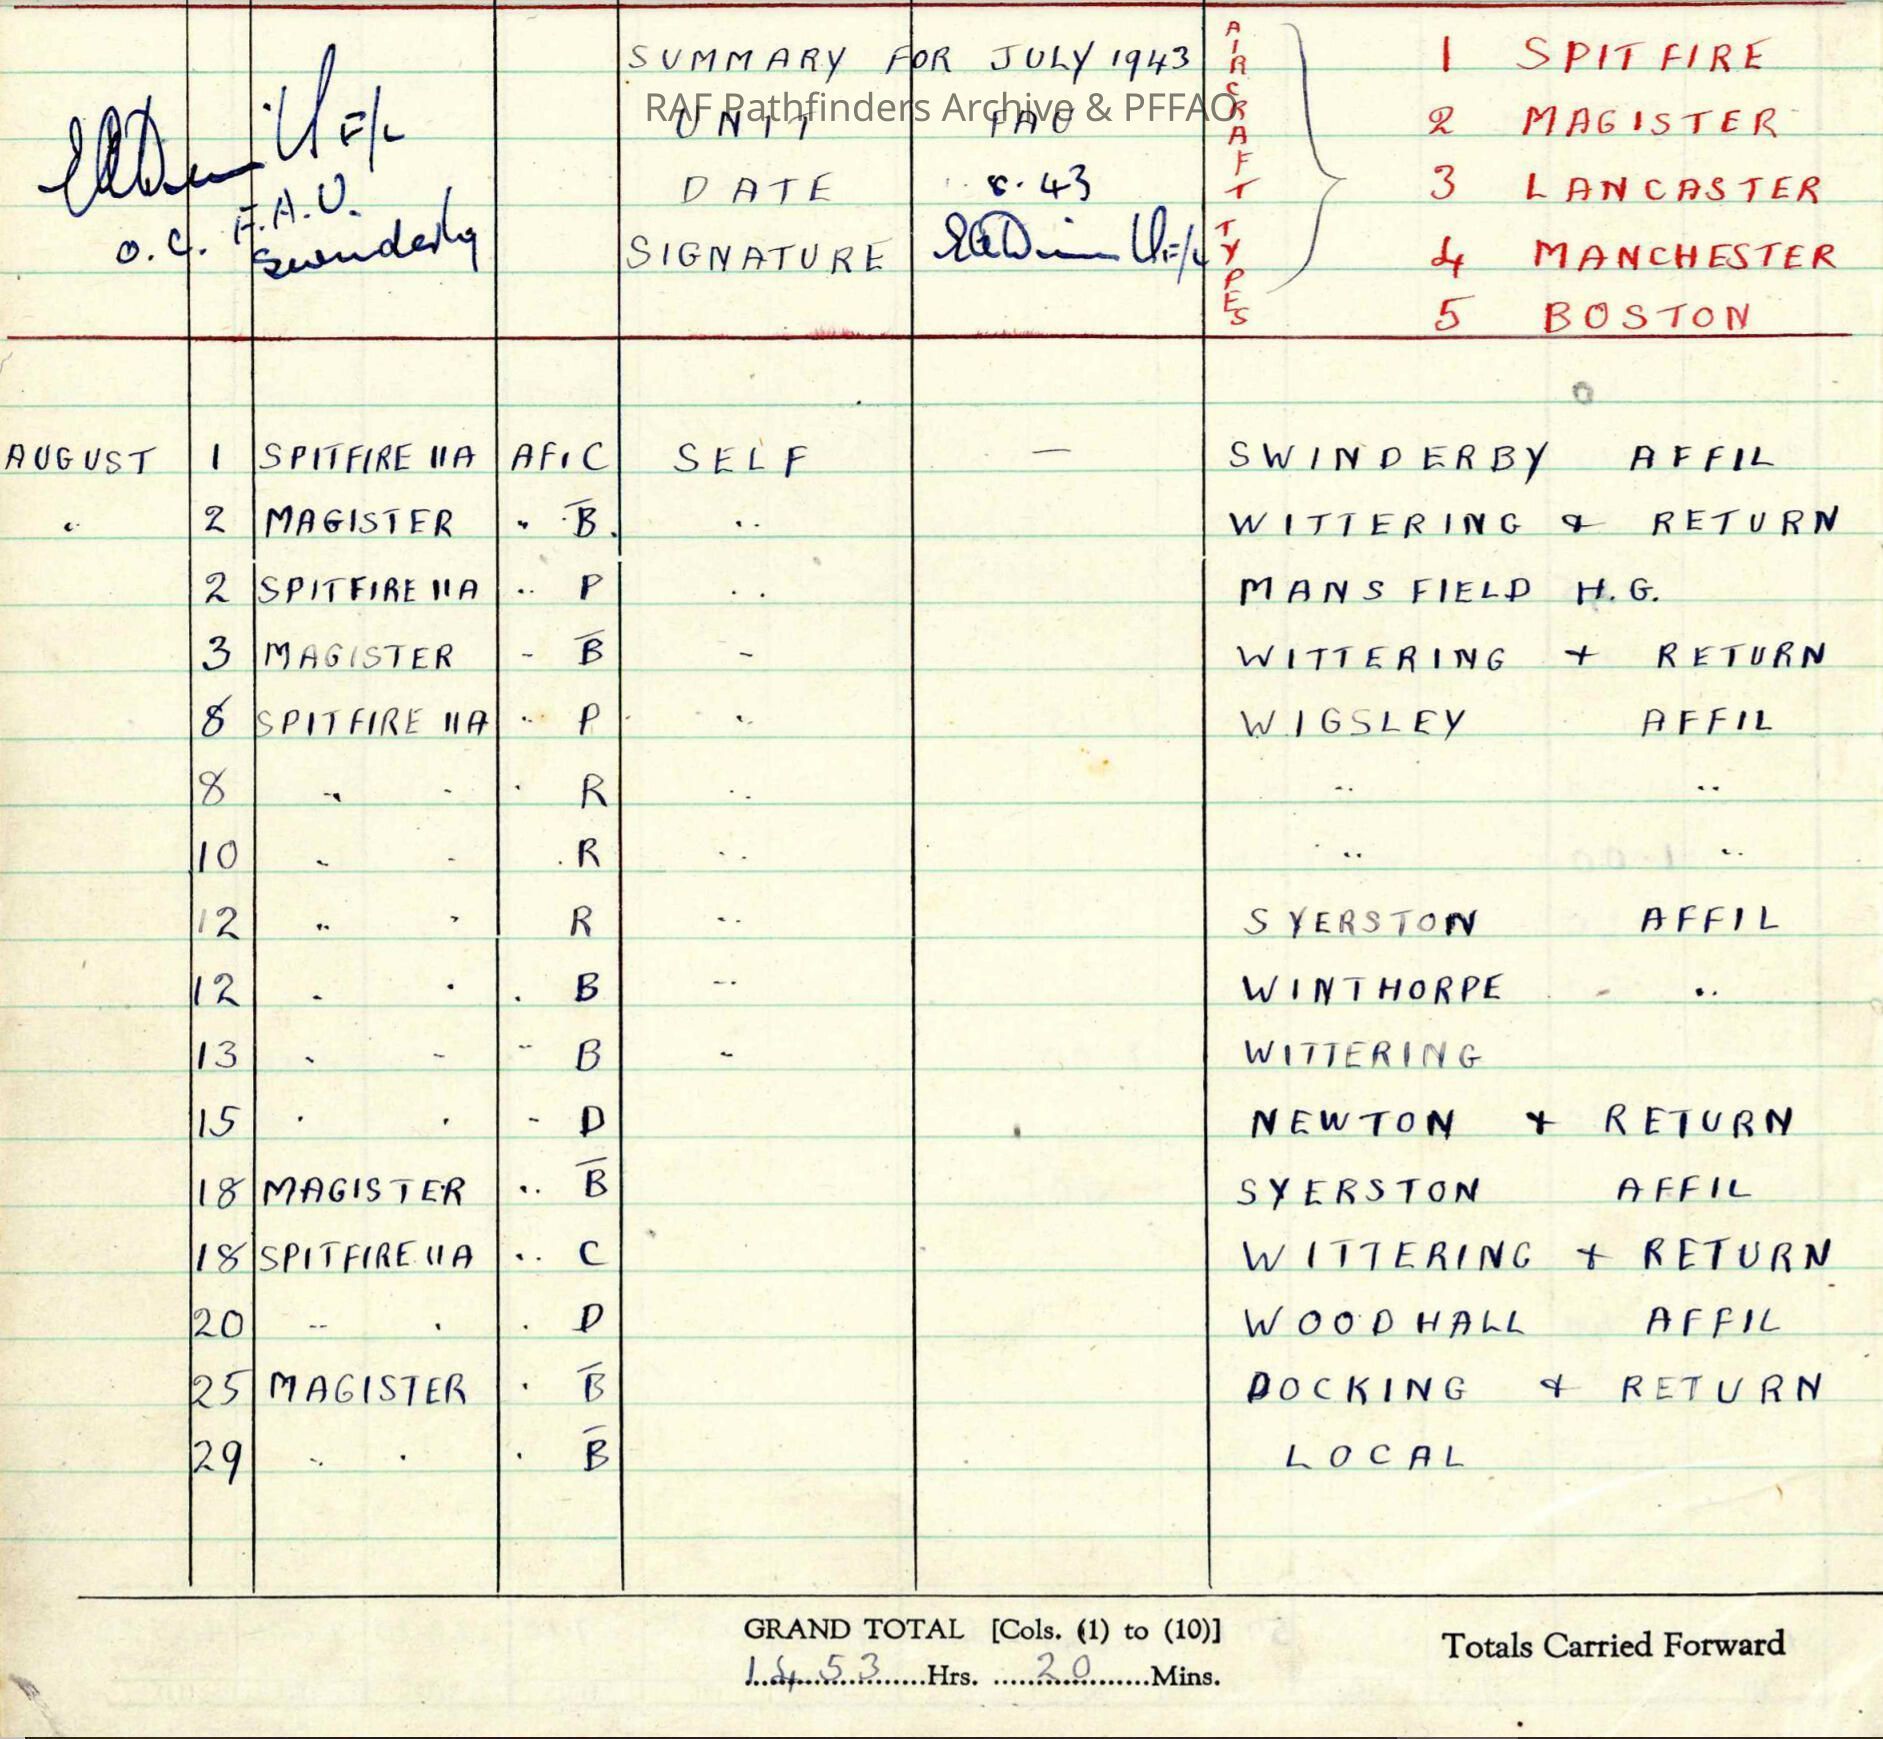 SUMMARY FOR JULY 1943
UNIT FAU
DATE 8.43
SIGNATURE
RAF Pathfinders Archive & PFFAO
O.C. F.A.U.
Swinderby
AIRCRAFT TYPES
1 SPITFIRE
2 MAGISTER
3 LANCASTER
4 MANCHESTER
5 BOSTON
AUGUST 1 SPITFIRE IIA AF1 C SELF — SWINDERBY AFFIL
" 2 MAGISTER " B̅ " WITTERING & RETURN
2 SPITFIRE IIA " P " MANSFIELD H.G.
3 MAGISTER " B̅ " WITTERING + RETURN
8 SPITFIRE IIA " P " WIGSLEY AFFIL
8 " " " R " " "
10 " " " R " " "
12 " " R " SYERSTON AFFIL
12 " " " B " WINTHORPE "
13 " " " B " WITTERING
15 " " " D NEWTON + RETURN
18 MAGISTER " B̅ SYERSTON AFFIL
18 SPITFIRE IIA " C WITTERING + RETURN
20 " " " D WOODHALL AFFIL
25 MAGISTER " B̅ DOCKING & RETURN
29 " " " B̅ LOCAL
GRAND TOTAL [Cols. (1) to (10)]
1453 Hrs. 20 Mins.
Totals Carried Forward